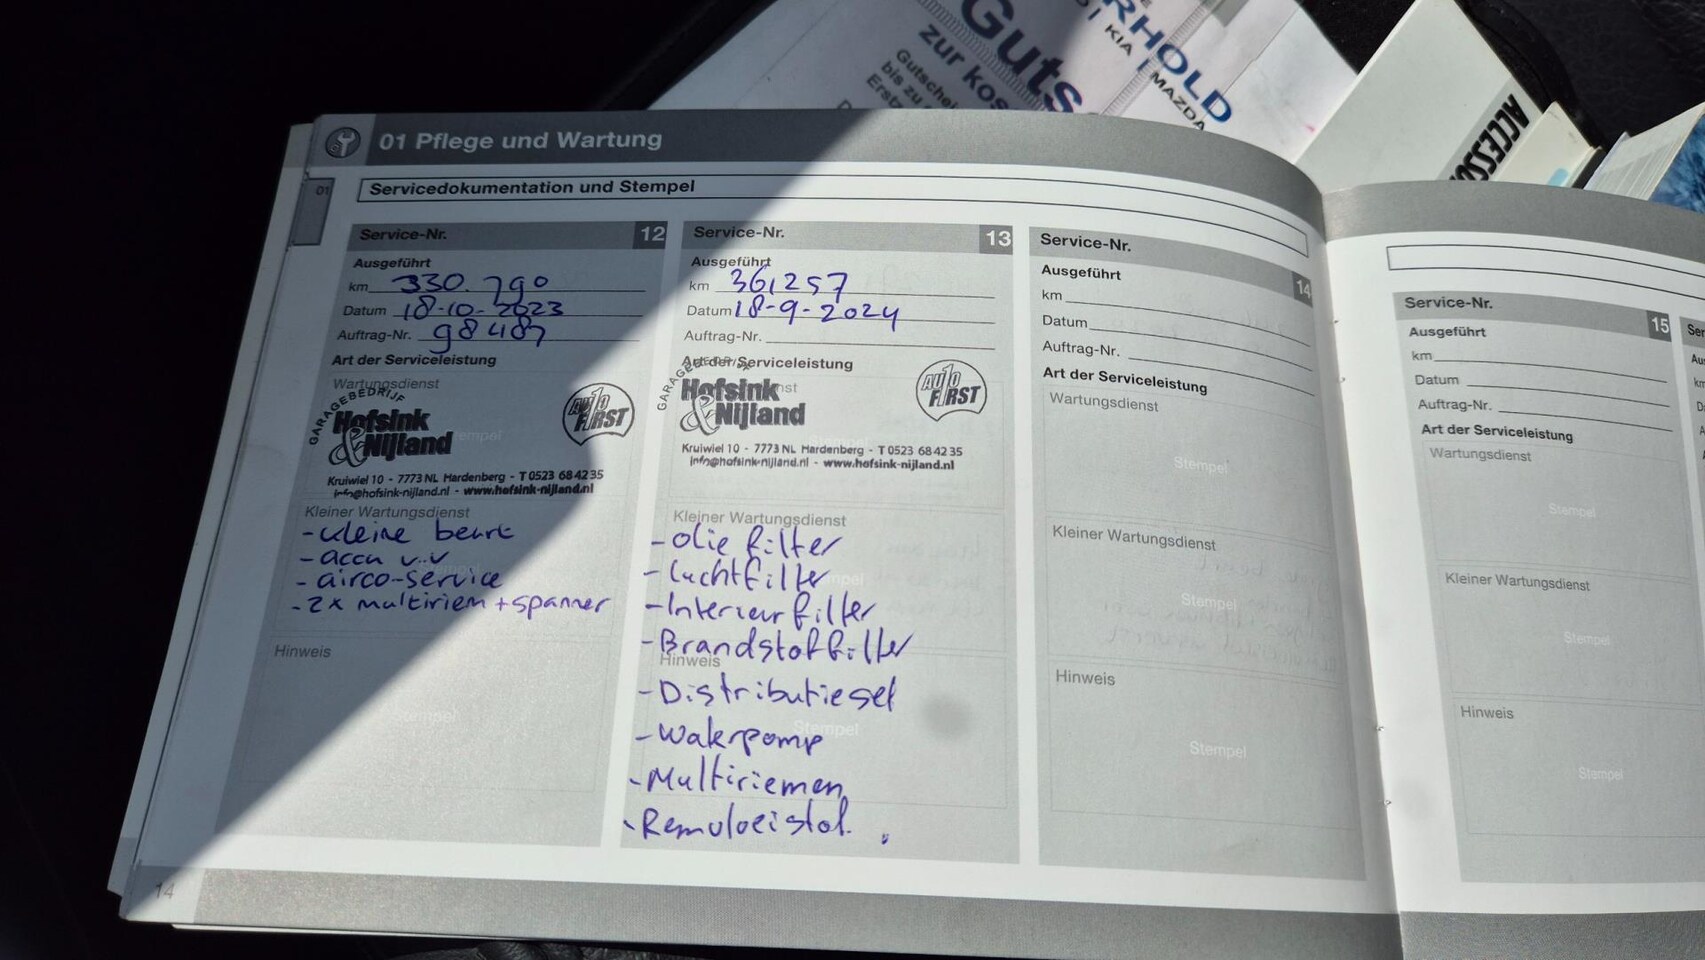 Guts
zur kos
Gutschei
bis zu
RHOLD
KIA | MAZDA
ACCESSO
01 Pflege und Wartung
01
Servicedokumentation und Stempel
Service-Nr. 12
Ausgeführt
km 330.790
Datum 18-10-2023
Auftrag-Nr. 98487
Art der Serviceleistung
Wartungsdienst
GARAGEBEDRIJF
Hofsink
& Nijland
AUTO
FIRST
Kruiwiel 10 - 7773 NL Hardenberg - T 0523 68 42 35
info@hofsink-nijland.nl - www.hofsink-nijland.nl
Kleiner Wartungsdienst
- kleine beurt
- accu v.v
- airco-service
- 2x multiriem + spanner
Hinweis
Stempel
Service-Nr. 13
Ausgeführt
km 361257
Datum 18-9-2024
Auftrag-Nr.
Art der Serviceleistung
GARAGEBEDRIJF
Hofsink
& Nijland
AUTO
FIRST
Kruiwiel 10 - 7773 NL Hardenberg - T 0523 68 42 35
info@hofsink-nijland.nl - www.hofsink-nijland.nl
Kleiner Wartungsdienst
- olie filter
- luchtfilter
- Interieurfilter
- Brandstoffilter
Hinweis
- Distributieset
- Waterpomp
Stempel
- Multiriemen
- Remvloeistof.
Service-Nr. 14
Ausgeführt
km
Datum
Auftrag-Nr.
Art der Serviceleistung
Wartungsdienst
Stempel
Kleiner Wartungsdienst
Stempel
Hinweis
Stempel
Service-Nr. 15
Ausgeführt
km
Datum
Auftrag-Nr.
Art der Serviceleistung
Wartungsdienst
Stempel
Kleiner Wartungsdienst
Stempel
Hinweis
Stempel
14